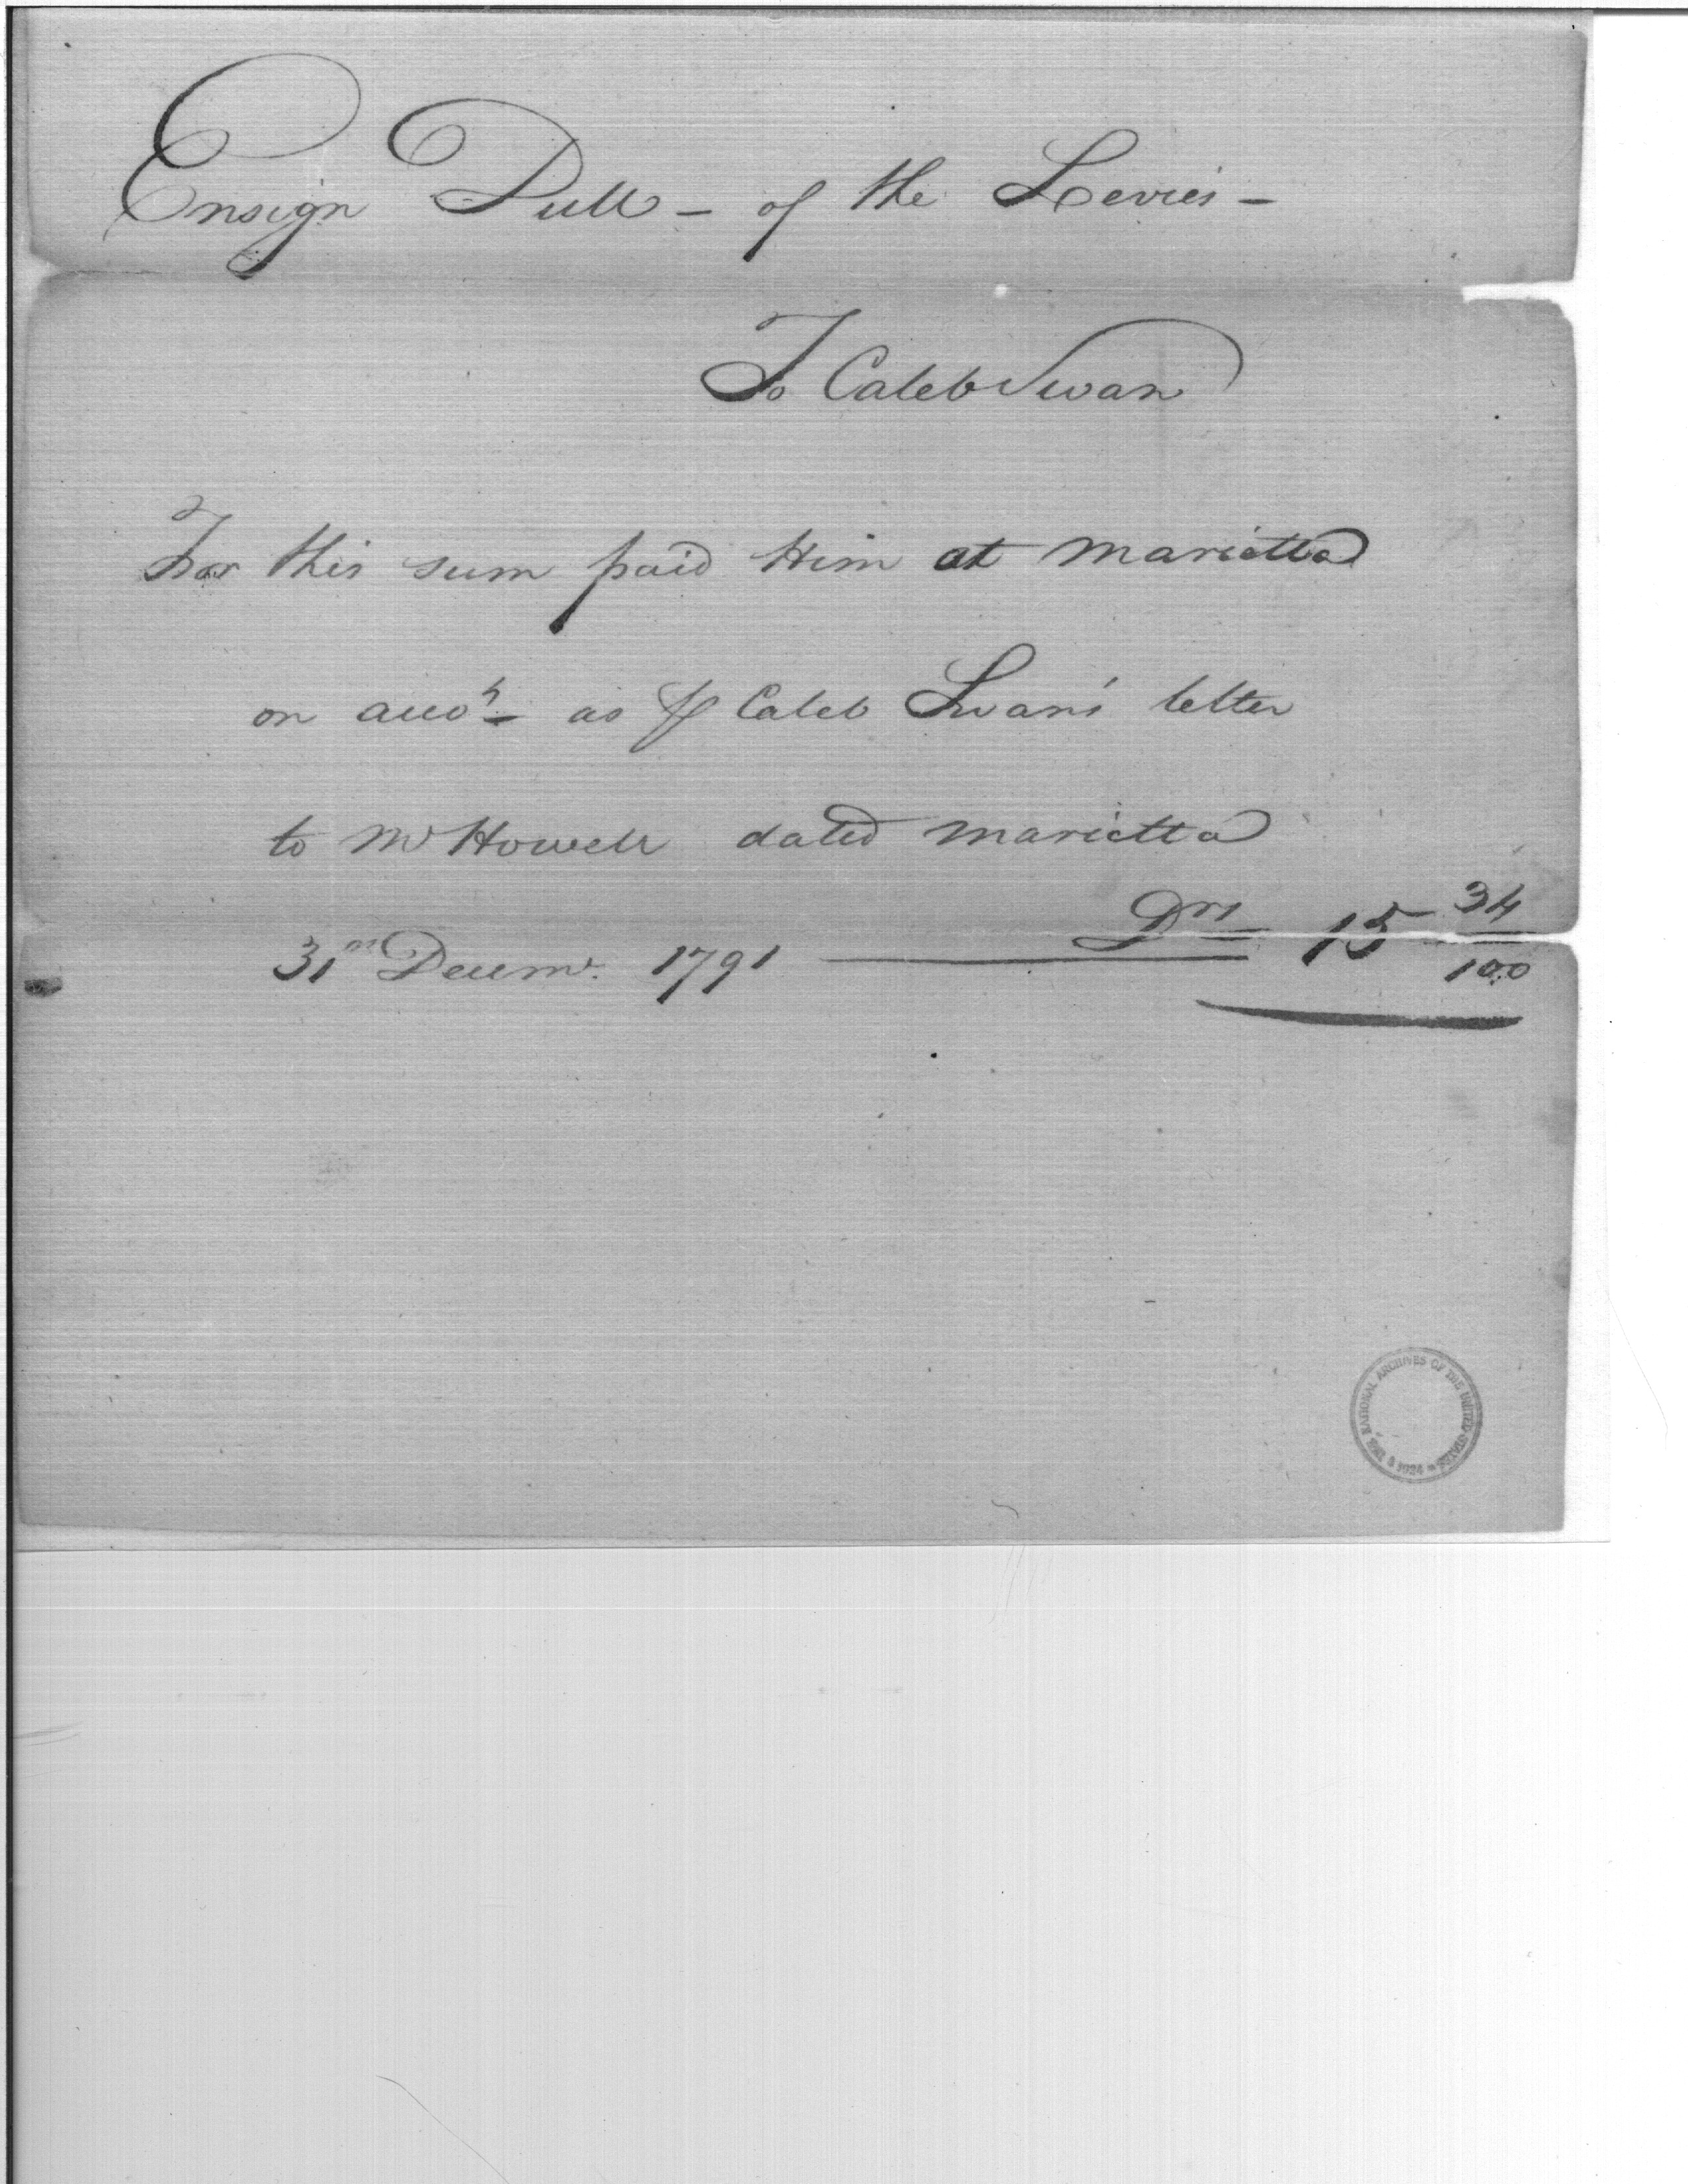 Ensign Dull - of the Levies -
To Caleb Swan
For this sum paid Him at Marietta
on acco^t as ⅌ Caleb Swan's letter
to Mr Howell dated Marietta
31st Decemr. 1791 Drs 15 34/100
NATIONAL ARCHIVES OF THE UNITED STATES